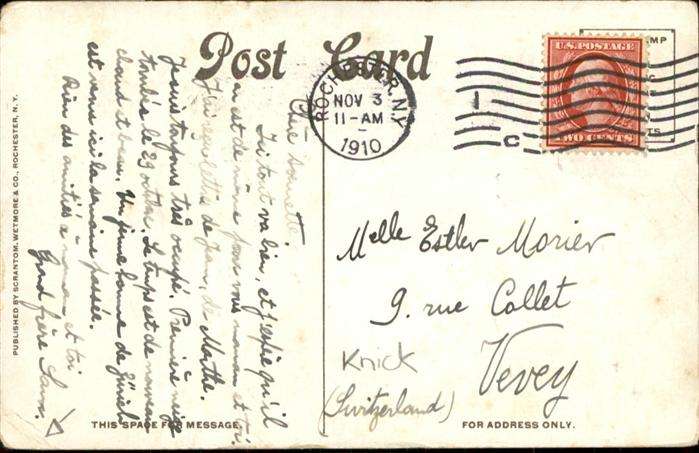 Post Card
ROCHESTER, N.Y.
NOV 3
11-AM
1910
1
C
U.S. POSTAGE
TWO CENTS
Ici tout va bien, et j'espère qu'il
en est de même pour vous maman et toi.
J'ai reçu lettre de Jean, de Marthe.
Je suis toujours très occupé. Première neige
tombée le 29 octobre. Le temps est de nouveau
chaud et beau. Un jeune homme de Zürich
est venu ici la semaine passée.
Bien des amitiés à maman et toi
Grand frère Sam.
Melle Esther Morier
9. rue Collet
Vevey
Knick
(Switzerland)
THIS SPACE FOR MESSAGE.
FOR ADDRESS ONLY.
PUBLISHED BY SCRANTOM, WETMORE & CO., ROCHESTER, N.Y.